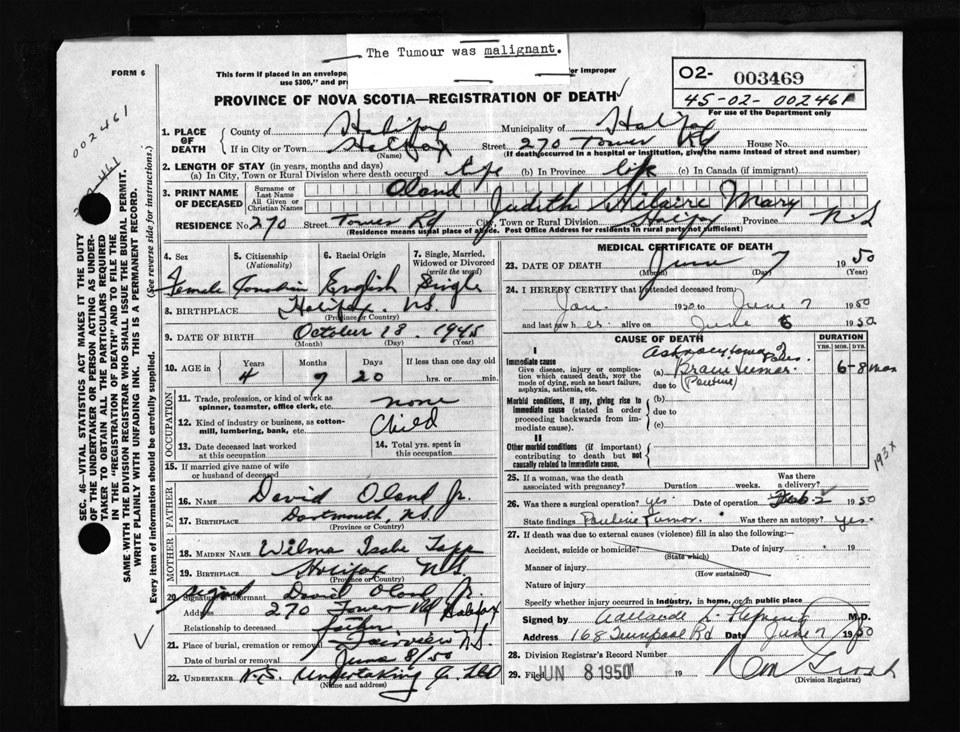 The Tumour was malignant.
FORM 6
This form if placed in an envelope,
or improper
use $300," and pr
PROVINCE OF NOVA SCOTIA—REGISTRATION OF DEATH
O2- 003469
45-02-002461
For use of the Department only
002461
SEC. 46—VITAL STATISTICS ACT MAKES IT THE DUTY
OF THE UNDERTAKER OR PERSON ACTING AS UNDER-
TAKER TO OBTAIN ALL THE PARTICULARS REQUIRED
IN THE "REGISTRATION OF DEATH" AND TO FILE THE
SAME WITH THE DIVISION REGISTRAR WHO SHALL ISSUE THE BURIAL PERMIT.
WRITE PLAINLY WITH UNFADING INK. THIS IS A PERMANENT RECORD.
Every item of information should be carefully supplied. (See reverse side for instructions.)
1. PLACE OF DEATH
County of Halifax Municipality of Halifax
If in City or Town Halifax Street 270 Tower Rd House No.
(Name) (If death occurred in a hospital or institution, give the name instead of street and number)
2. LENGTH OF STAY (in years, months and days)
(a) In City, Town or Rural Division where death occurred life (b) In Province life (c) In Canada (if immigrant)
3. PRINT NAME OF DECEASED
Surname or Last Name Oland
All Given or Christian Names Judith Hilaire Mary
RESIDENCE No. 270 Street Tower Rd City, Town or Rural Division Halifax Province N.S
(Residence means usual place of abode. Post Office Address for residents in rural parts not sufficient)
4. Sex Female
5. Citizenship (Nationality) Canadian
6. Racial Origin English
7. Single, Married, Widowed or Divorced (write the word) Single
8. BIRTHPLACE Halifax N.S.
(Province or Country)
9. DATE OF BIRTH October 18 1945
(Month) (Day) (Year)
10. AGE in Years 4 Months 7 Days 20 If less than one day old hrs. or min.
OCCUPATION
11. Trade, profession, or kind of work as spinner, teamster, office clerk, etc. none
12. Kind of industry or business, as cotton-mill, lumbering, bank, etc. Child
13. Date deceased last worked at this occupation
14. Total yrs. spent in this occupation
15. If married give name of wife or husband of deceased
FATHER
16. NAME David Oland Jr.
17. BIRTHPLACE Dartmouth, N.S.
(Province or Country)
MOTHER
18. MAIDEN NAME Wilma Tapp
19. BIRTHPLACE Halifax N.S.
(Province or Country)
20. Signature of informant Signed David Oland Jr.
Address 270 Tower Rd Halifax
Relationship to deceased father
21. Place of burial, cremation or removal Fairview N.S.
Date of burial or removal June 8/50
22. UNDERTAKER N.S. Undertaking Co Ltd
(Name and address)
MEDICAL CERTIFICATE OF DEATH
23. DATE OF DEATH June 7 1950
(Month) (Day) (Year)
24. I HEREBY CERTIFY that I attended deceased from
Jan. 1950 to June 7 1950
and last saw her alive on June 6 1950
CAUSE OF DEATH
DURATION
YRS. MOS. DYS.
I
Immediate cause
Give disease, injury or complication which caused death, not the mode of dying, such as heart failure, asphyxia, asthenia, etc.
(a) Astrocytoma of Pons.
Brain tumor. 6-8 mos
due to (Pontine)
Morbid conditions, if any, giving rise to immediate cause (stated in order proceeding backwards from immediate cause).
(b)
due to
(c)
II
Other morbid conditions (if important) contributing to death but not causally related to immediate cause.
193x
25. If a woman, was the death associated with pregnancy? Duration weeks. Was there a delivery?
26. Was there a surgical operation? yes. Date of operation Feb 2 1950
State findings Pontine Tumor. Was there an autopsy? yes.
27. If death was due to external causes (violence) fill in also the following:
Accident, suicide or homicide? Date of injury 19
(State which)
Manner of injury
(How sustained)
Nature of injury
Specify whether injury occurred in industry, in home, or in public place
Signed by Adelaide L. Fleming M.D.
Address 168 Quinpool Rd Date June 7 1950
28. Division Registrar's Record Number
29. Filed JUN 8 1950 19
(Division Registrar)